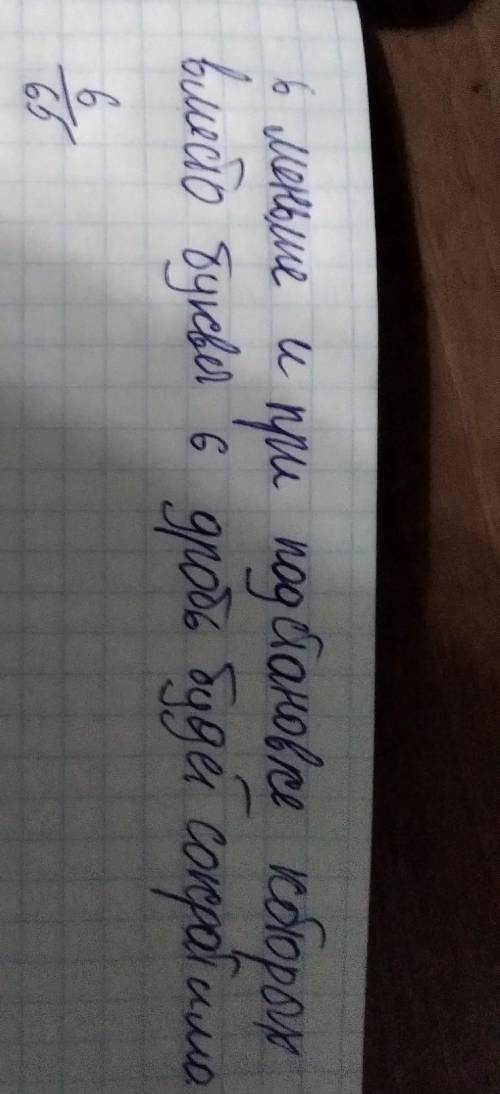 в меньше и при подстановке которых
вместо буквы в дробь будет сократима.
в/65